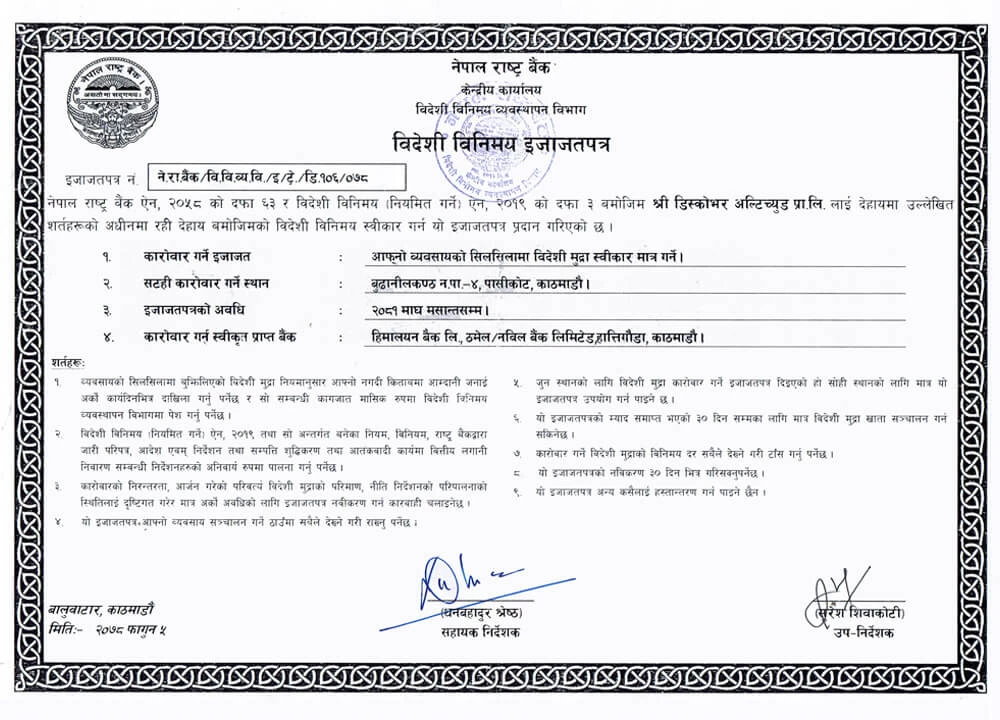 नेपाल राष्ट्र बैंक
असतो मा सद्गमय
नेपाल राष्ट्र बैंक
केन्द्रीय कार्यालय
विदेशी विनिमय व्यवस्थापन विभाग
विदेशी विनिमय इजाजतपत्र
इजाजतपत्र नं. ने.रा.बैंक/वि.वि.व्य.वि./इ/ट्रे./डि.१०६/०७८
नेपाल राष्ट्र बैंक ऐन, २०५८ को दफा ६३ र विदेशी विनिमय (नियमित गर्ने) ऐन, २०१९ को दफा ३ बमोजिम श्री डिस्कोभर अल्टिच्युड प्रा.लि. लाई देहायमा उल्लेखित
शर्तहरूको अधीनमा रही देहाय बमोजिमको विदेशी विनिमय स्वीकार गर्न यो इजाजतपत्र प्रदान गरिएको छ ।
१. कारोवार गर्ने इजाजत : आफ्नो व्यवसायको सिलसिलामा विदेशी मुद्रा स्वीकार मात्र गर्ने।
२. सटही कारोवार गर्ने स्थान : बुढानीलकण्ठ न.पा.-४, पासीकोट, काठमाडौं।
३. इजाजतपत्रको अवधि : २०८१ माघ मसान्तसम्म।
४. कारोवार गर्न स्वीकृत प्राप्त बैंक : हिमालयन बैंक लि., ठमेल/नविल बैंक लिमिटेड,हात्तिगौडा, काठमाडौं।
शर्तहरू:
१. व्यवसायको सिलसिलामा बुझिलिएको विदेशी मुद्रा नियमानुसार आफ्नो नगदी किताबमा आम्दानी जनाई
अर्को कार्यदिनभित्र दाखिला गर्नु पर्नेछ र सो सम्बन्धी कागजात मासिक रुपमा विदेशी विनिमय
व्यवस्थापन विभागमा पेश गर्नु पर्नेछ ।
२. विदेशी विनिमय (नियमित गर्ने) ऐन, २०१९ तथा सो अन्तर्गत बनेका नियम, विनियम, राष्ट्र बैंकद्वारा
जारी परिपत्र, आदेश एवम् निर्देशन तथा सम्पत्ति शुद्धिकरण तथा आतंकवादी कार्यमा वित्तीय लगानी
निवारण सम्बन्धी निर्देशनहरुको अनिवार्य रुपमा पालना गर्नु पर्नेछ ।
३. कारोबारको निरन्तरता, आर्जन गरेको परिवर्त्य विदेशी मुद्राको परिमाण, नीति निर्देशनको परिपालनाको
स्थितिलाई दृष्टिगत गरेर मात्र अर्को अवधिको लागि इजाजतपत्र नवीकरण गर्न कारवाही चलाइनेछ ।
४. यो इजाजतपत्र आफ्नो व्यवसाय सञ्चालन गर्ने ठाउँमा सबैले देख्ने गरी राख्नु पर्नेछ ।
५. जुन स्थानको लागि विदेशी मुद्रा कारोवार गर्ने इजाजतपत्र दिइएको हो सोही स्थानको लागि मात्र यो
इजाजतपत्र उपयोग गर्न पाइने छ ।
६. यो इजाजतपत्रको म्याद समाप्त भएको ३० दिन सम्मका लागि मात्र विदेशी मुद्रा खाता सञ्चालन गर्न
सकिनेछ ।
७. कारोवार गर्ने विदेशी मुद्राको विनिमय दर सबैले देख्ने गरी टाँस गर्नु पर्नेछ ।
८. यो इजाजतपत्रको नविकरण ३० दिन भित्र गरिसक्नुपर्नेछ ।
९. यो इजाजतपत्र अन्य कसैलाई हस्तान्तरण गर्न पाइने छैन ।
बालुवाटार, काठमाडौं
मिति:- २०७८ फागुन ५
(धनबहादुर श्रेष्ठ)
सहायक निर्देशक
(सुरेश शिवाकोटी)
उप-निर्देशक